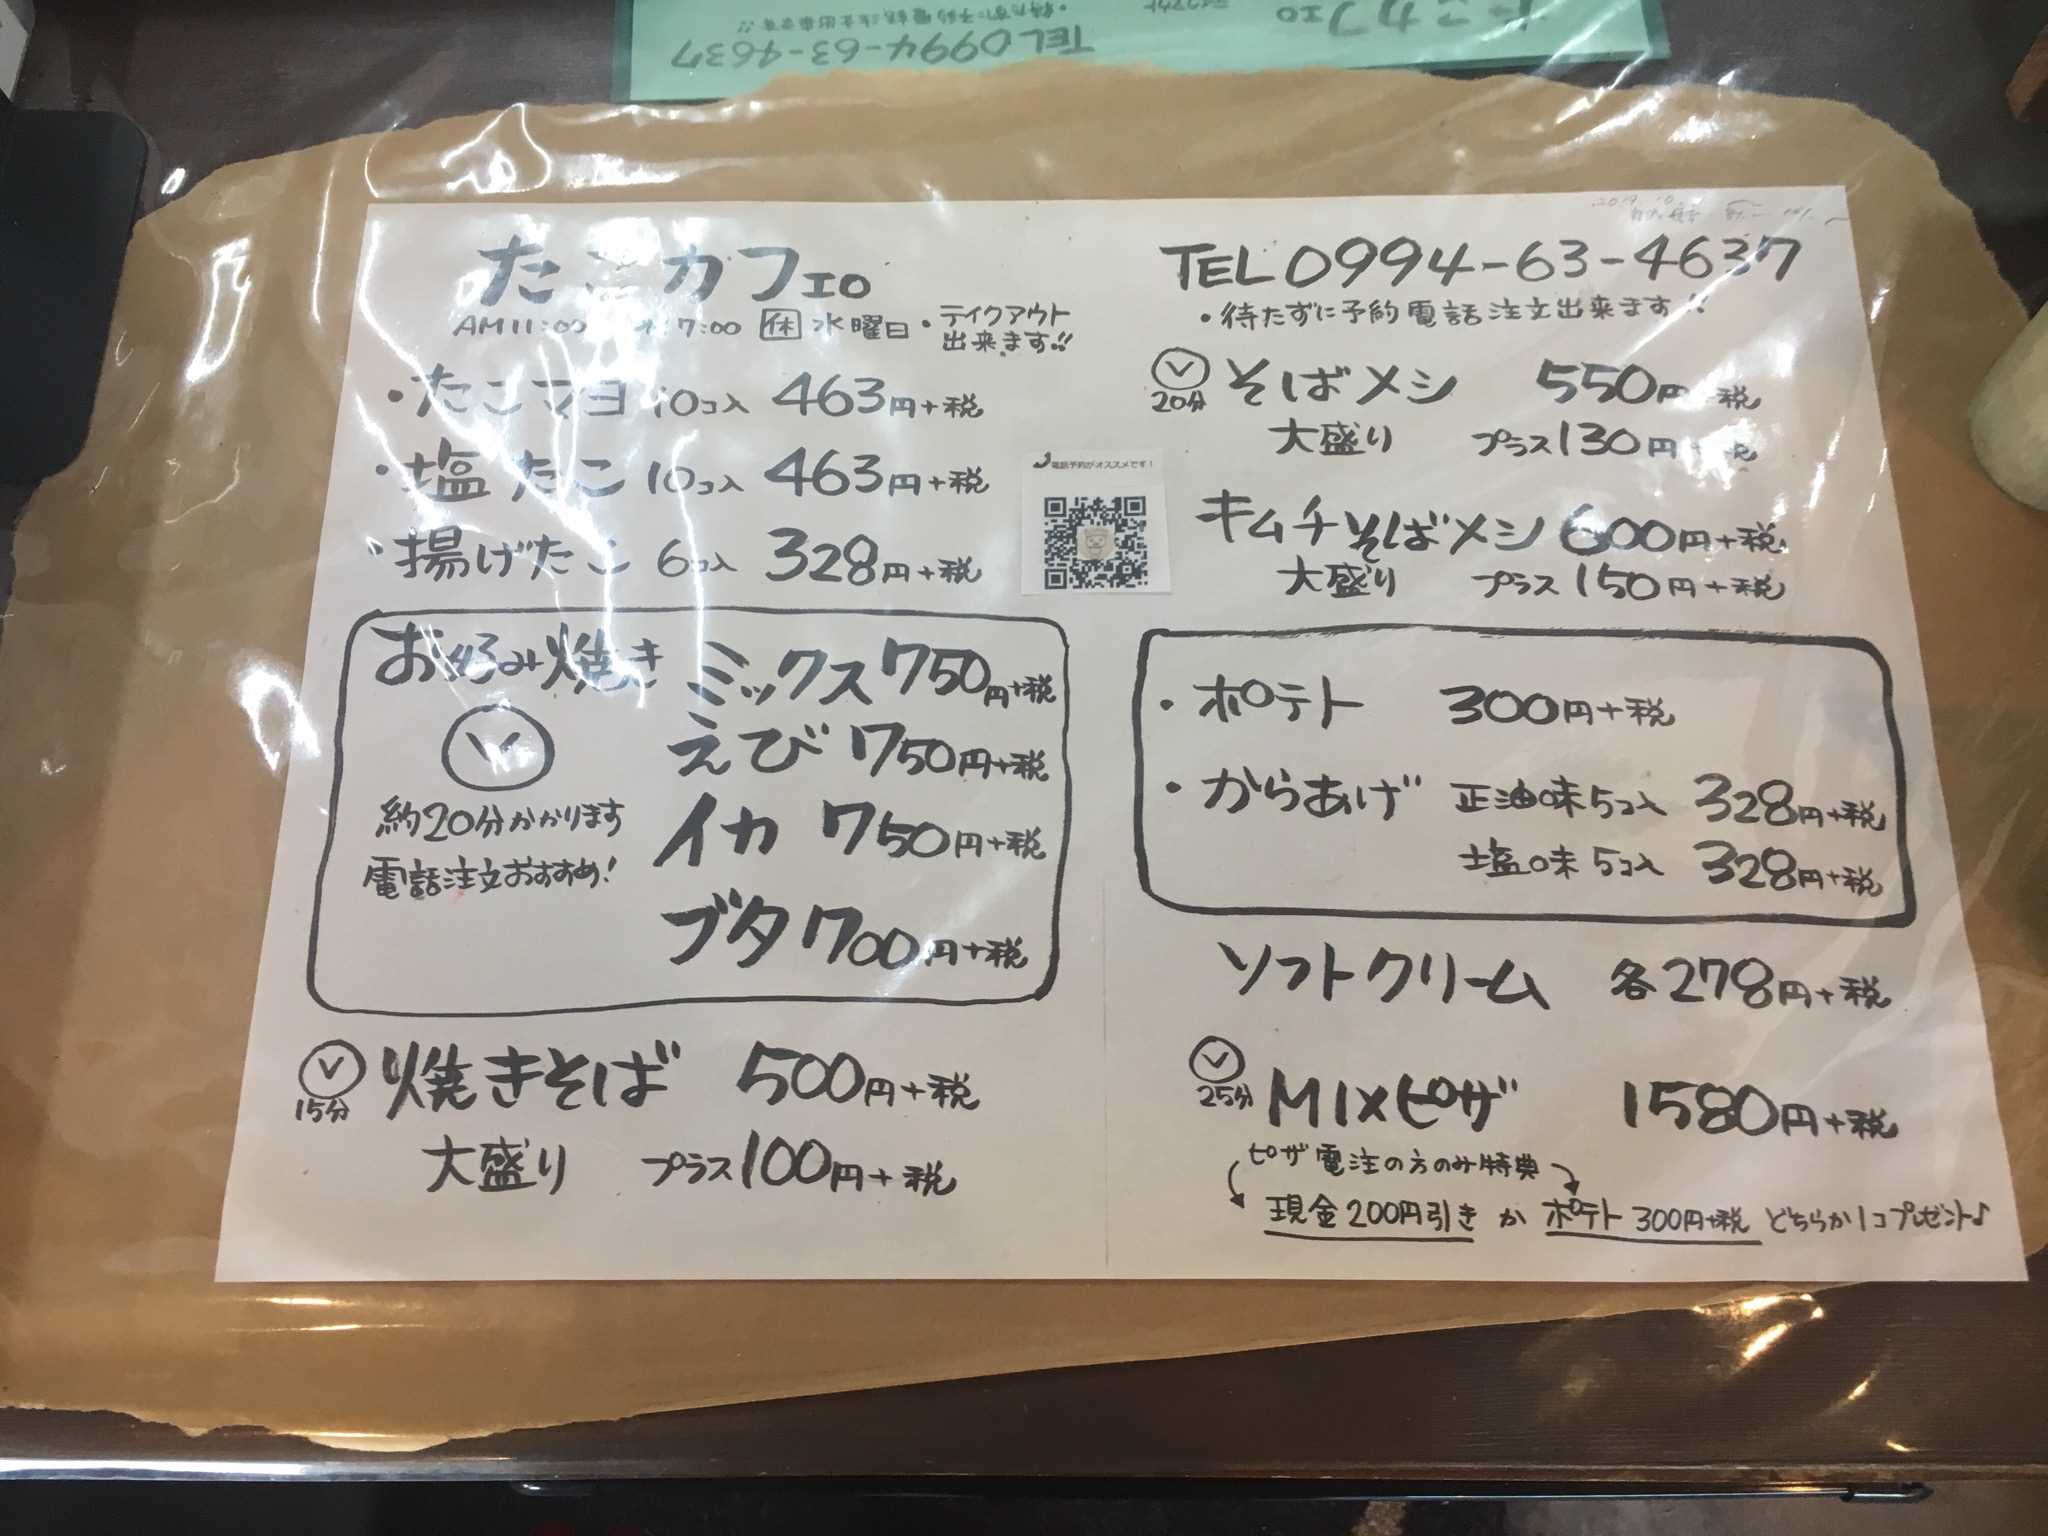 たこカフェ
AM11:00 7:00 休 水曜日 ・テイクアウト
出来ます!!
・たこマヨ 10コ入 463円+税
・塩たこ 10コ入 463円+税
・揚げたこ 6コ入 328円+税
お好み焼き ミックス 750円+税
えび 750円+税
イカ 750円+税
ブタ 700円+税
約20分かかります
電話注文おすすめ!
15分 焼きそば 500円+税
大盛り プラス100円+税
電話予約がオススメです!
TEL0994-63-4637
・待たずに予約電話注文出来ます!!
20分 そばメシ 550円+税
大盛り プラス130円+税
キムチそばメシ 600円+税
大盛り プラス150円+税
・ポテト 300円+税
・からあげ 正油味5コ入 328円+税
塩味5コ入 328円+税
ソフトクリーム 各278円+税
25分 MIXピザ 1580円+税
ピザ電注の方のみ特典
現金200円引き か ポテト300円+税 どちらか1コプレゼント♪
TEL0994-63-4637
たこカフェ